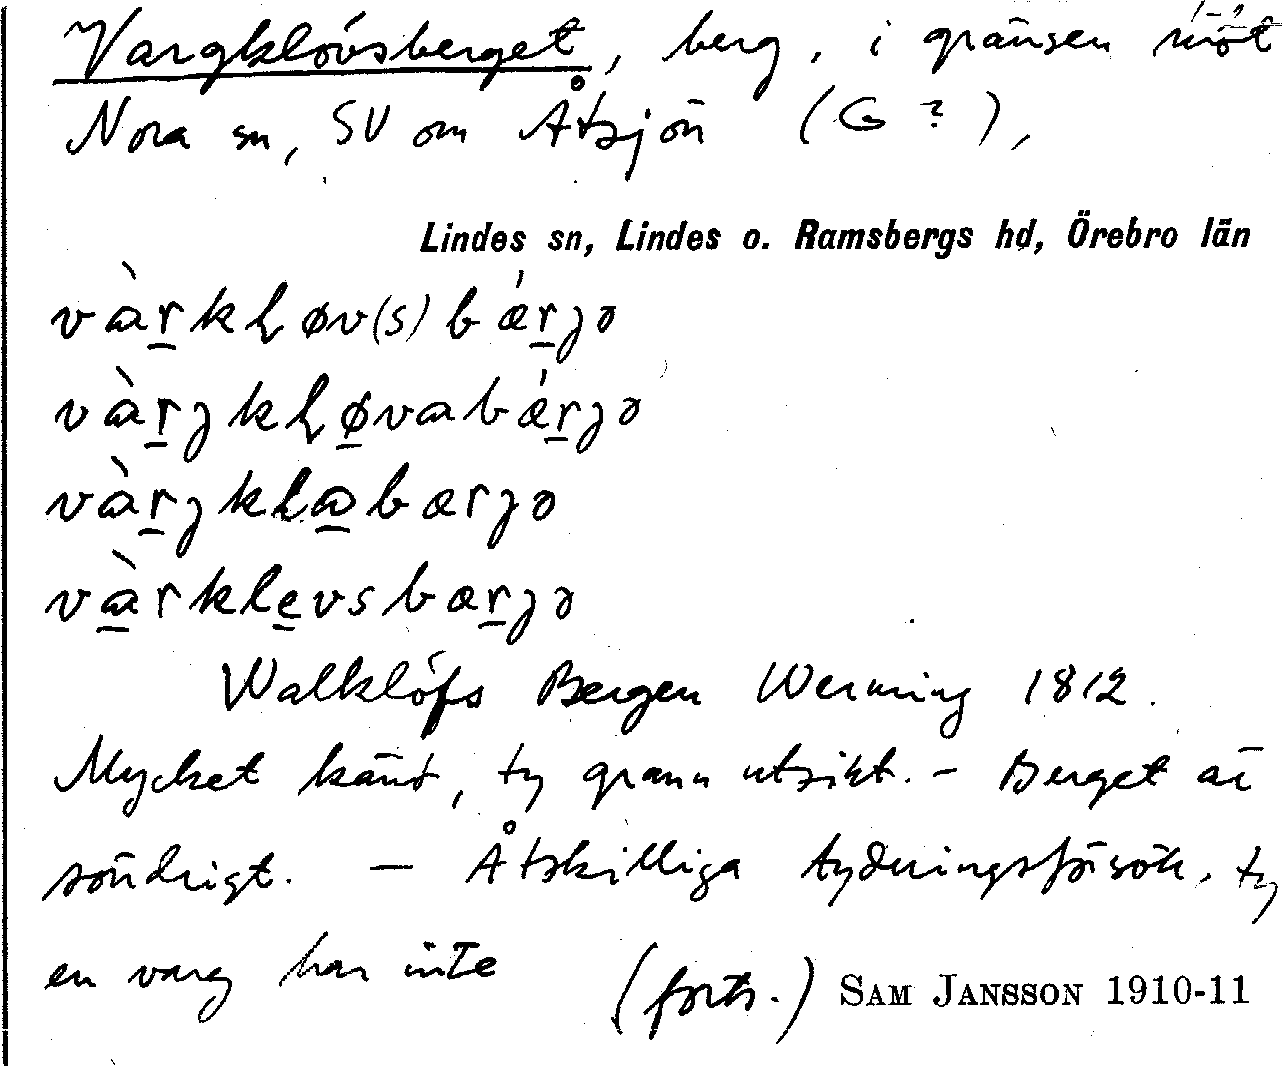 Vargklövsberget, berg, i gränsen mot
Nora sn, SV om Åtsjön (G ?),
Lindes sn, Lindes o. Ramsbergs hd, Örebro län
vàrkløv(s)bǽrjə
vàrjkløvabǽrjə
vàrjklabærjə
vàrklevsbærjə
Walklöfs Bergen Werming 1812.
Mycket känt, ty grann utsikt. – Berget är
söndrigt. – Åtskilliga tydningsförsök, ty
en varg har inte (forts.) SAM JANSSON 1910-11